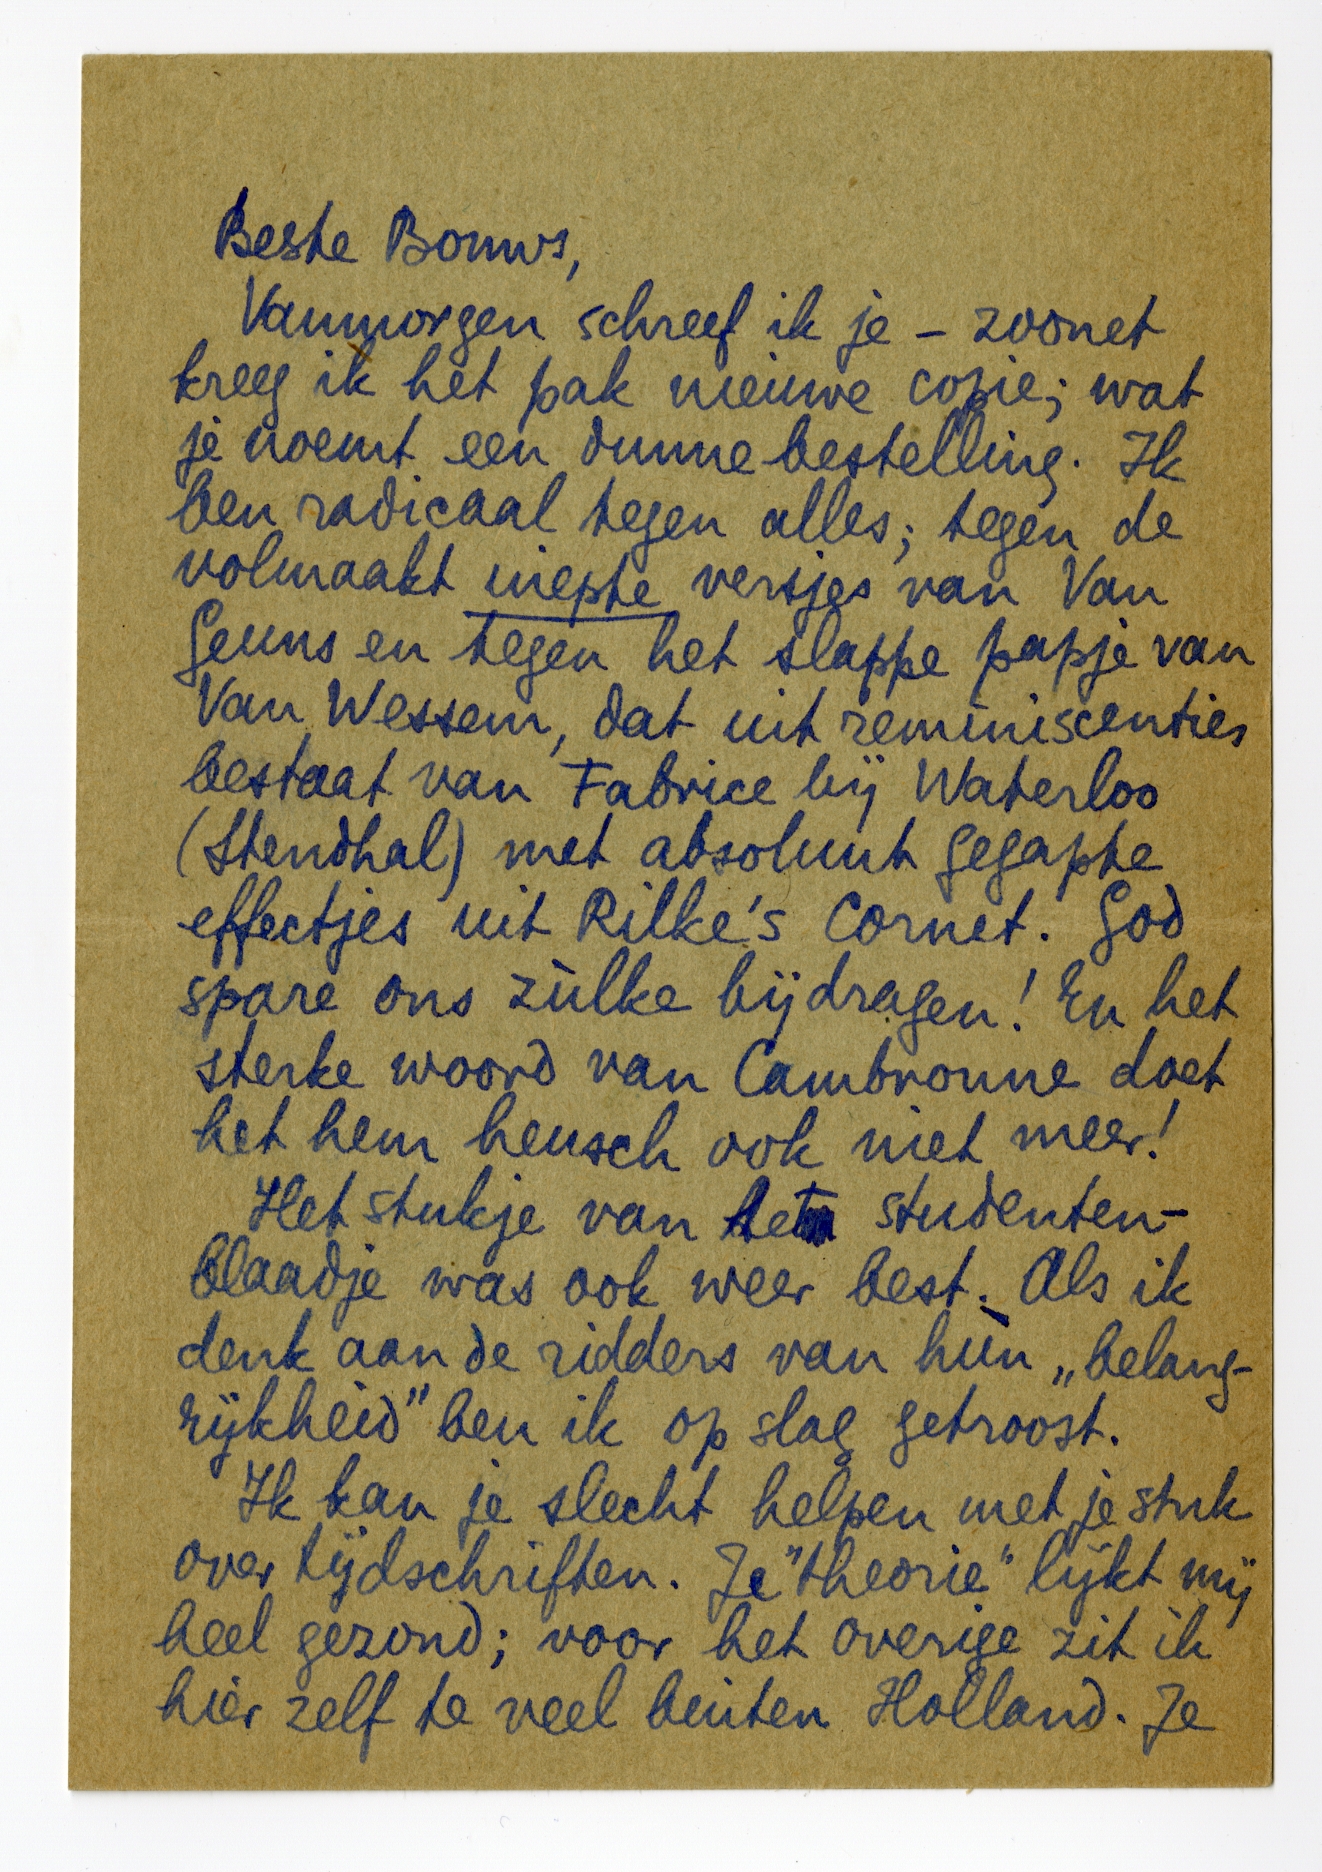 Beste Bouws,
Vanmorgen schreef ik je – zoonet
kreeg ik het pak nieuwe copie; wat
je noemt een dunne bestelling. Ik
ben radicaal tegen alles; tegen de
volmaakt inepte versjes van Van
Geuns en tegen het slappe papje van
Van Wessem, dat uit reminiscenties
bestaat van Fabrice bij Waterloo
(Stendhal) met absoluut gegapte
effectjes uit Rilke's Cornet. God
spare ons zùlke bijdragen! En het
sterke woord van Cambronne doet
het hem heusch ook niet meer!
Het stukje van het studenten-
blaadje was ook weer best. Als ik
denk aan de ridders van hùn „belang-
rijkheid" ben ik op slag getroost.
Ik kan je slecht helpen met je stuk
over tijdschriften. Je "theorie" lijkt mij
heel gezond; voor het overige zit ik
hier zelf te veel buiten Holland. Je